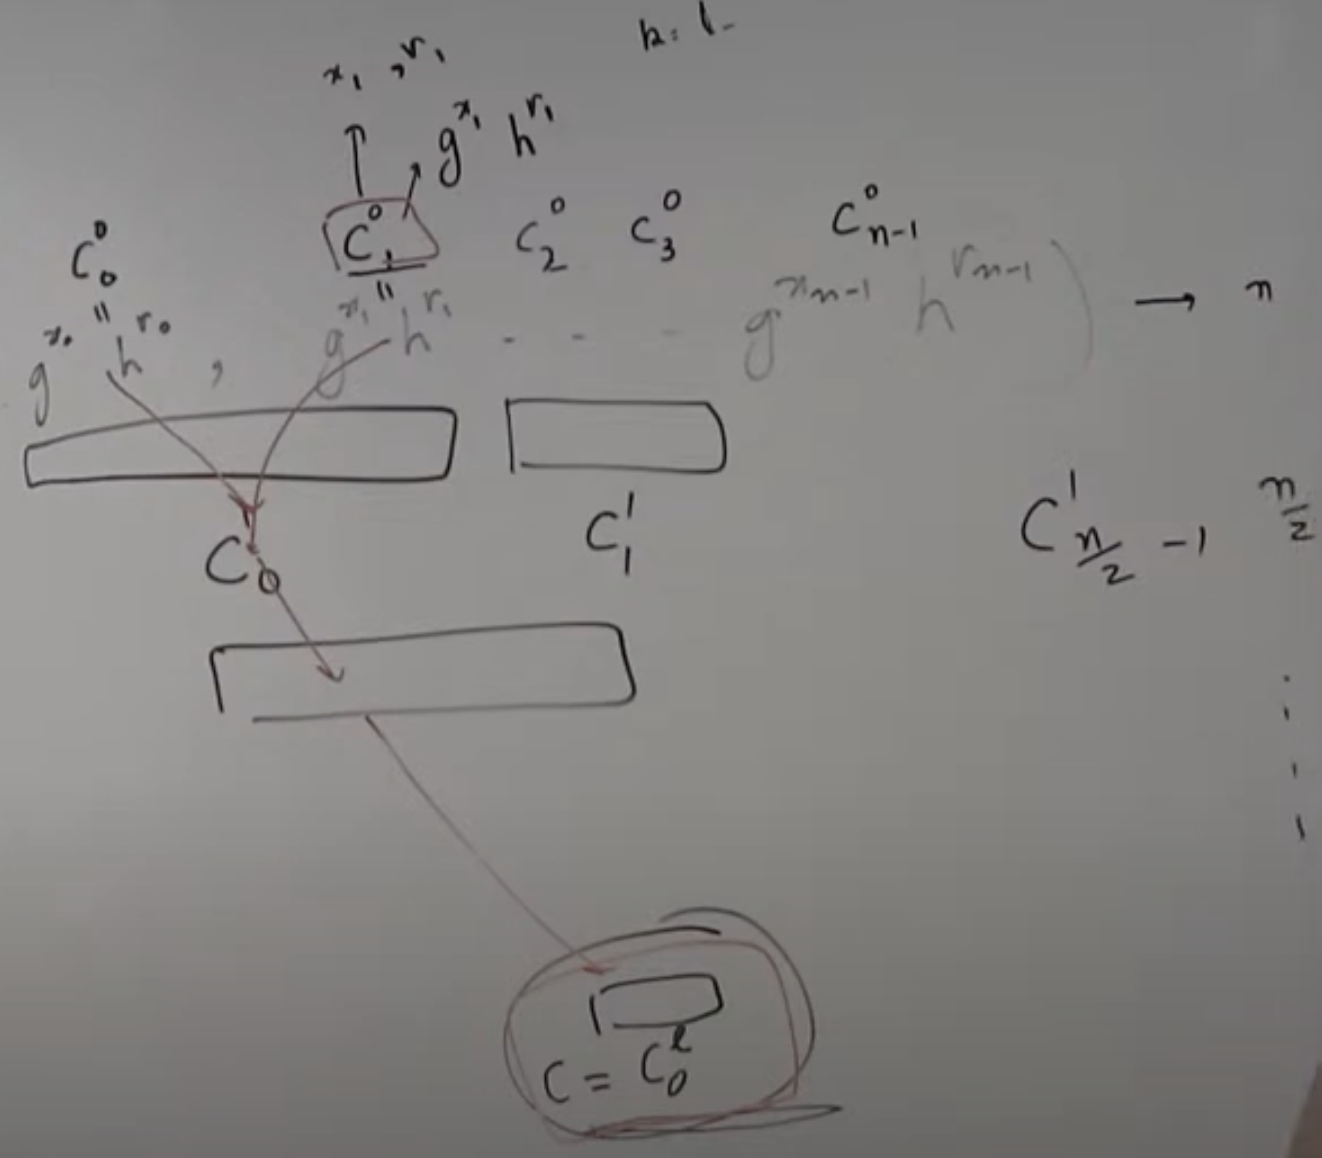 k = 1
x₁, r₁
g^x₁ h^r₁
C₀⁰ C₁⁰ C₂⁰ C₃⁰ Cₙ₋₁⁰
g^x₀ h^r₀ , g^x₁ h^r₁ - - - g^xₙ₋₁ h^rₙ₋₁ ) → n
C₀ C₁¹ C¹_{n/2 - 1} n/2
1
C = C₀^l